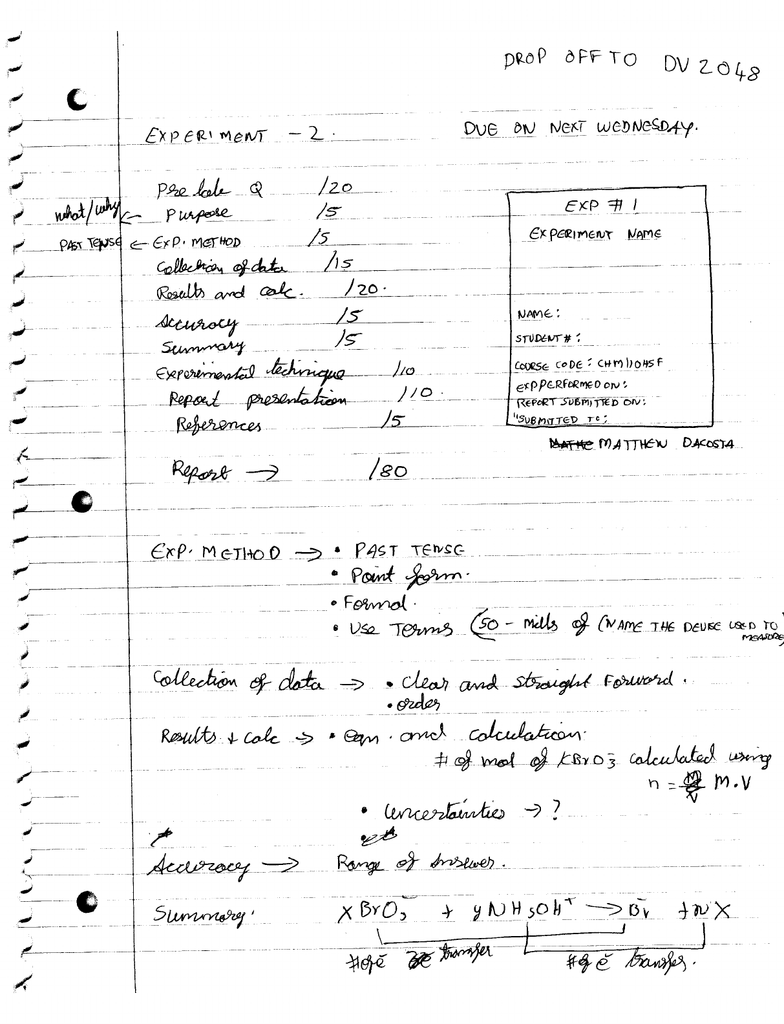 DROP OFF TO DV 2048
EXPERIMENT - 2.
DUE ON NEXT WEDNESDAY.
Pre lab Q /20
what/why ← Purpose /5
PAST TENSE ← EXP. METHOD /5
Collection of data /15
Results and calc. /20.
Accuracy /5
Summary /5
Experimental technique /10
Report presentation /10.
References /5
Report → /80
EXP # 1
EXPERIMENT NAME
NAME:
STUDENT #:
COURSE CODE: CHM110H5F
EXP PERFORMED ON:
REPORT SUBMITTED ON:
"SUBMITTED TO:
MATTHEW DACOSTA
EXP. METHOD → • PAST TENSE
• Point form.
• Formal.
• USE TERMS (50 - mills of (NAME THE DEVISE USED TO MEASURE
Collection of data → • Clear and straight forward.
• order
Results + calc → • eqn. and calculation.
# of mol of KBrO3 calculated using
n = M.V
• Uncertainties → ?
Accuracy → Range of answer.
Summary. X BrO3- + y NH3OH+ → Br- + N X
# of e- transfer
# of e- transfer.